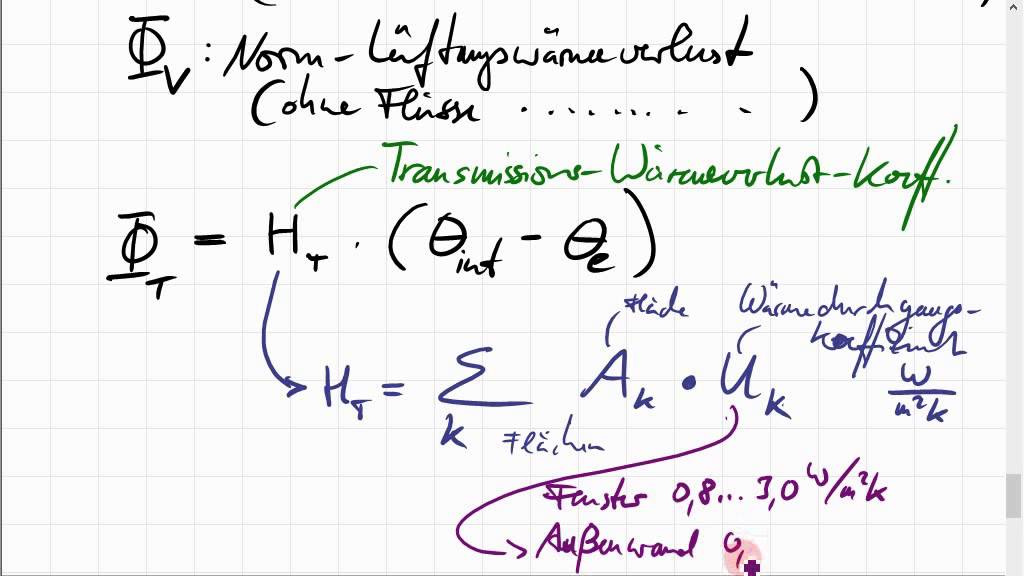 Φ_V : Norm-Lüftungswärmeverlust
(ohne Flüsse ......... )
Transmissions-Wärmeverlust-Koeff.
Φ_T = H_T · (θ_int - θ_e)
Fläche Wärmedurchgangs-
koeffizient
H_T = Σ_k A_k • U_k W/m²K
Flächen
Fenster 0,8... 3,0 W/m²K
Außenwand 0,